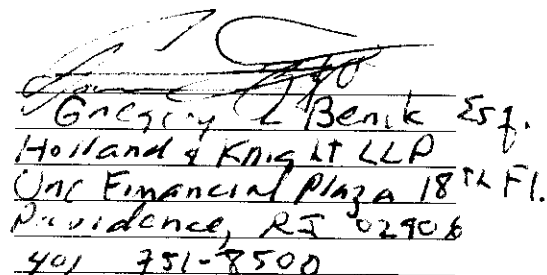 Gregory L Benik Esq.
Holland & Knight LLP
One Financial Plaza 18th Fl.
Providence, RI 02906
401 751-8500